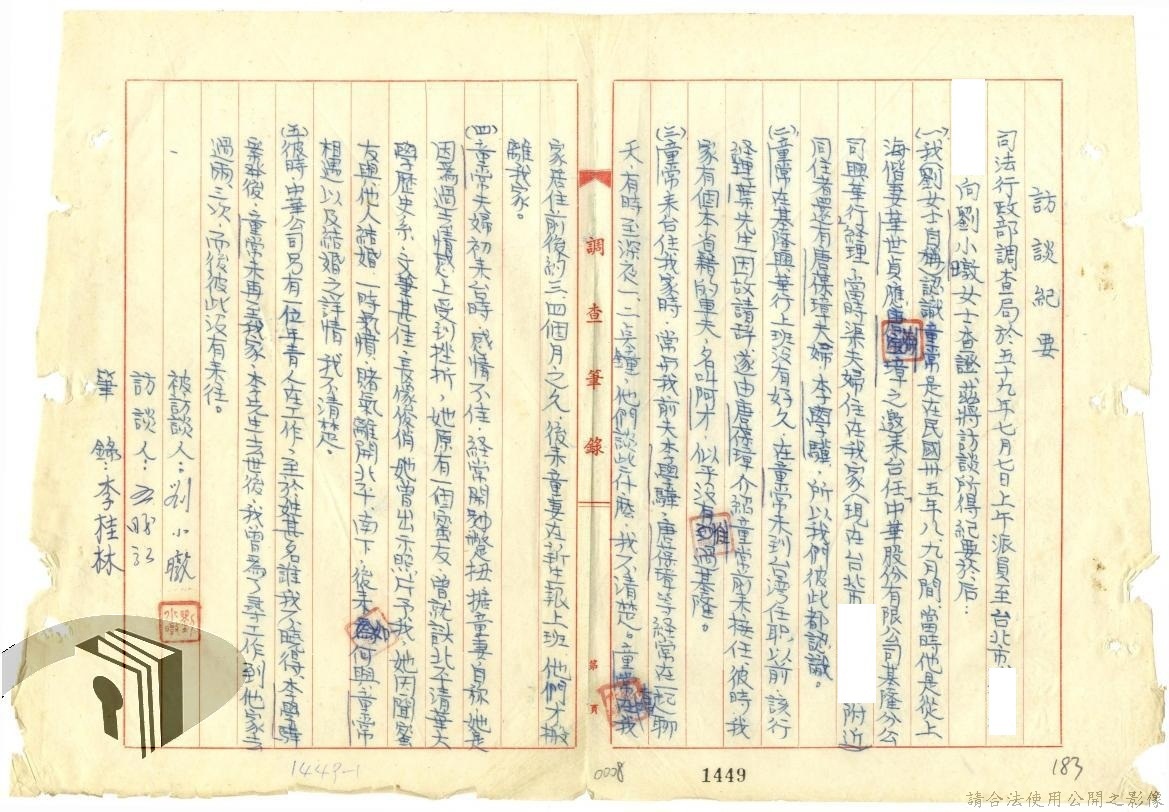 訪談紀要
司法行政部調查局於五十九年七月七日上午派員至台北市
向劉小暾女士查證 茲將訪談所得紀要於后:
(一)我劉女士(自稱)認識童常是在民國卅五年八、九月間,當時他是從上
海偕妻華世貞應唐保璋之邀來台任「中華股份有限公司基隆分公
司興華行經理,當時渠夫婦住在我家(現在台北市 附近)
同住者還有唐保璋夫婦、李學驊,所以我們彼此都認識。
(二)童常在基隆興華行上班沒有好久,在童常未到台灣任職以前,該行
經理葉先生因故請辭,遂由唐保璋介紹童常前來接任,彼時我
家有個本省籍的車夫,名叫阿才,似乎沒有到過基隆。
(三)童常來台住我家時,常與我前夫李學驊、唐保璋等經常在一起聊
天,有時至深夜一、二点鐘,他們談些什麼,我不清楚。童常在我
家居住前後約三、四個月之久,後來童妻在新生報上班,他們才搬
離我家。
(四)童常夫婦初來台時,感情不佳,經常鬧彆扭,據童妻自稱,她是
因為過去情感上受到挫折,她原有一個密友,曾就讀北平清華大
學歷史系,文筆甚佳,長像修俏,她曾出示照片予我,她因聞密
友與他人結婚,一時氣憤,賭氣離開北平南下,後來如何與童常
相遇以及結婚之詳情,我不清楚。
(五)彼時中華公司另有一位年青人在工作,至於姓甚名誰我不曉得,李學驊
案發後,童常未再至我家,李先生去世後,我曾為了尋工作到他家去
過兩三次,而後彼此沒有來往。
被訪談人:劉小暾
訪談人:
筆 錄:李桂林
調查筆錄
第 頁
1449-1
0008
1449
183
請合法使用公開之影像